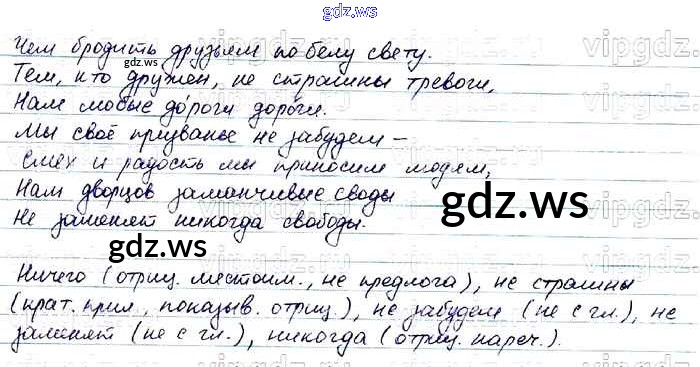 gdz.ws
Чем бродить друзьям по белу свету.
gdz.ws
Тем, кто дружен, не страшны тревоги,
Нам любые дóроги дорóги.
Мы своё призванье не забудем –
Смех и радость мы приносим людям,
Нам дворцов заманчивые своды
gdz.ws
Не заменят никогда свободы.
gdz.ws
Ничего (отриц. местоим., не предлога), не страшны
(крат. прил., показыв. отриц.), не забудем (не с гл.), не
заменят (не с гл.), никогда (отриц. нареч.).